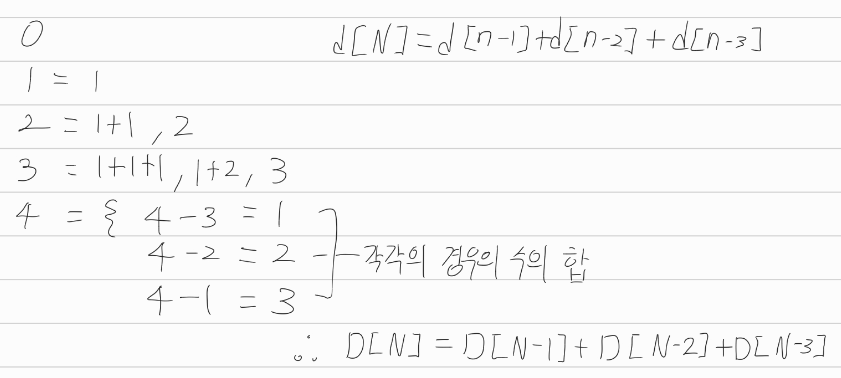 0
d[N]=d[n-1]+d[n-2]+d[n-3]
1 = 1
2 = 1+1, 2
3 = 1+1+1, 1+2, 3
4 = { 4-3 = 1
4-2 = 2 각각의 경우의 수의 합
4-1 = 3
∴ D[N] = D[N-1]+D[N-2]+D[N-3]